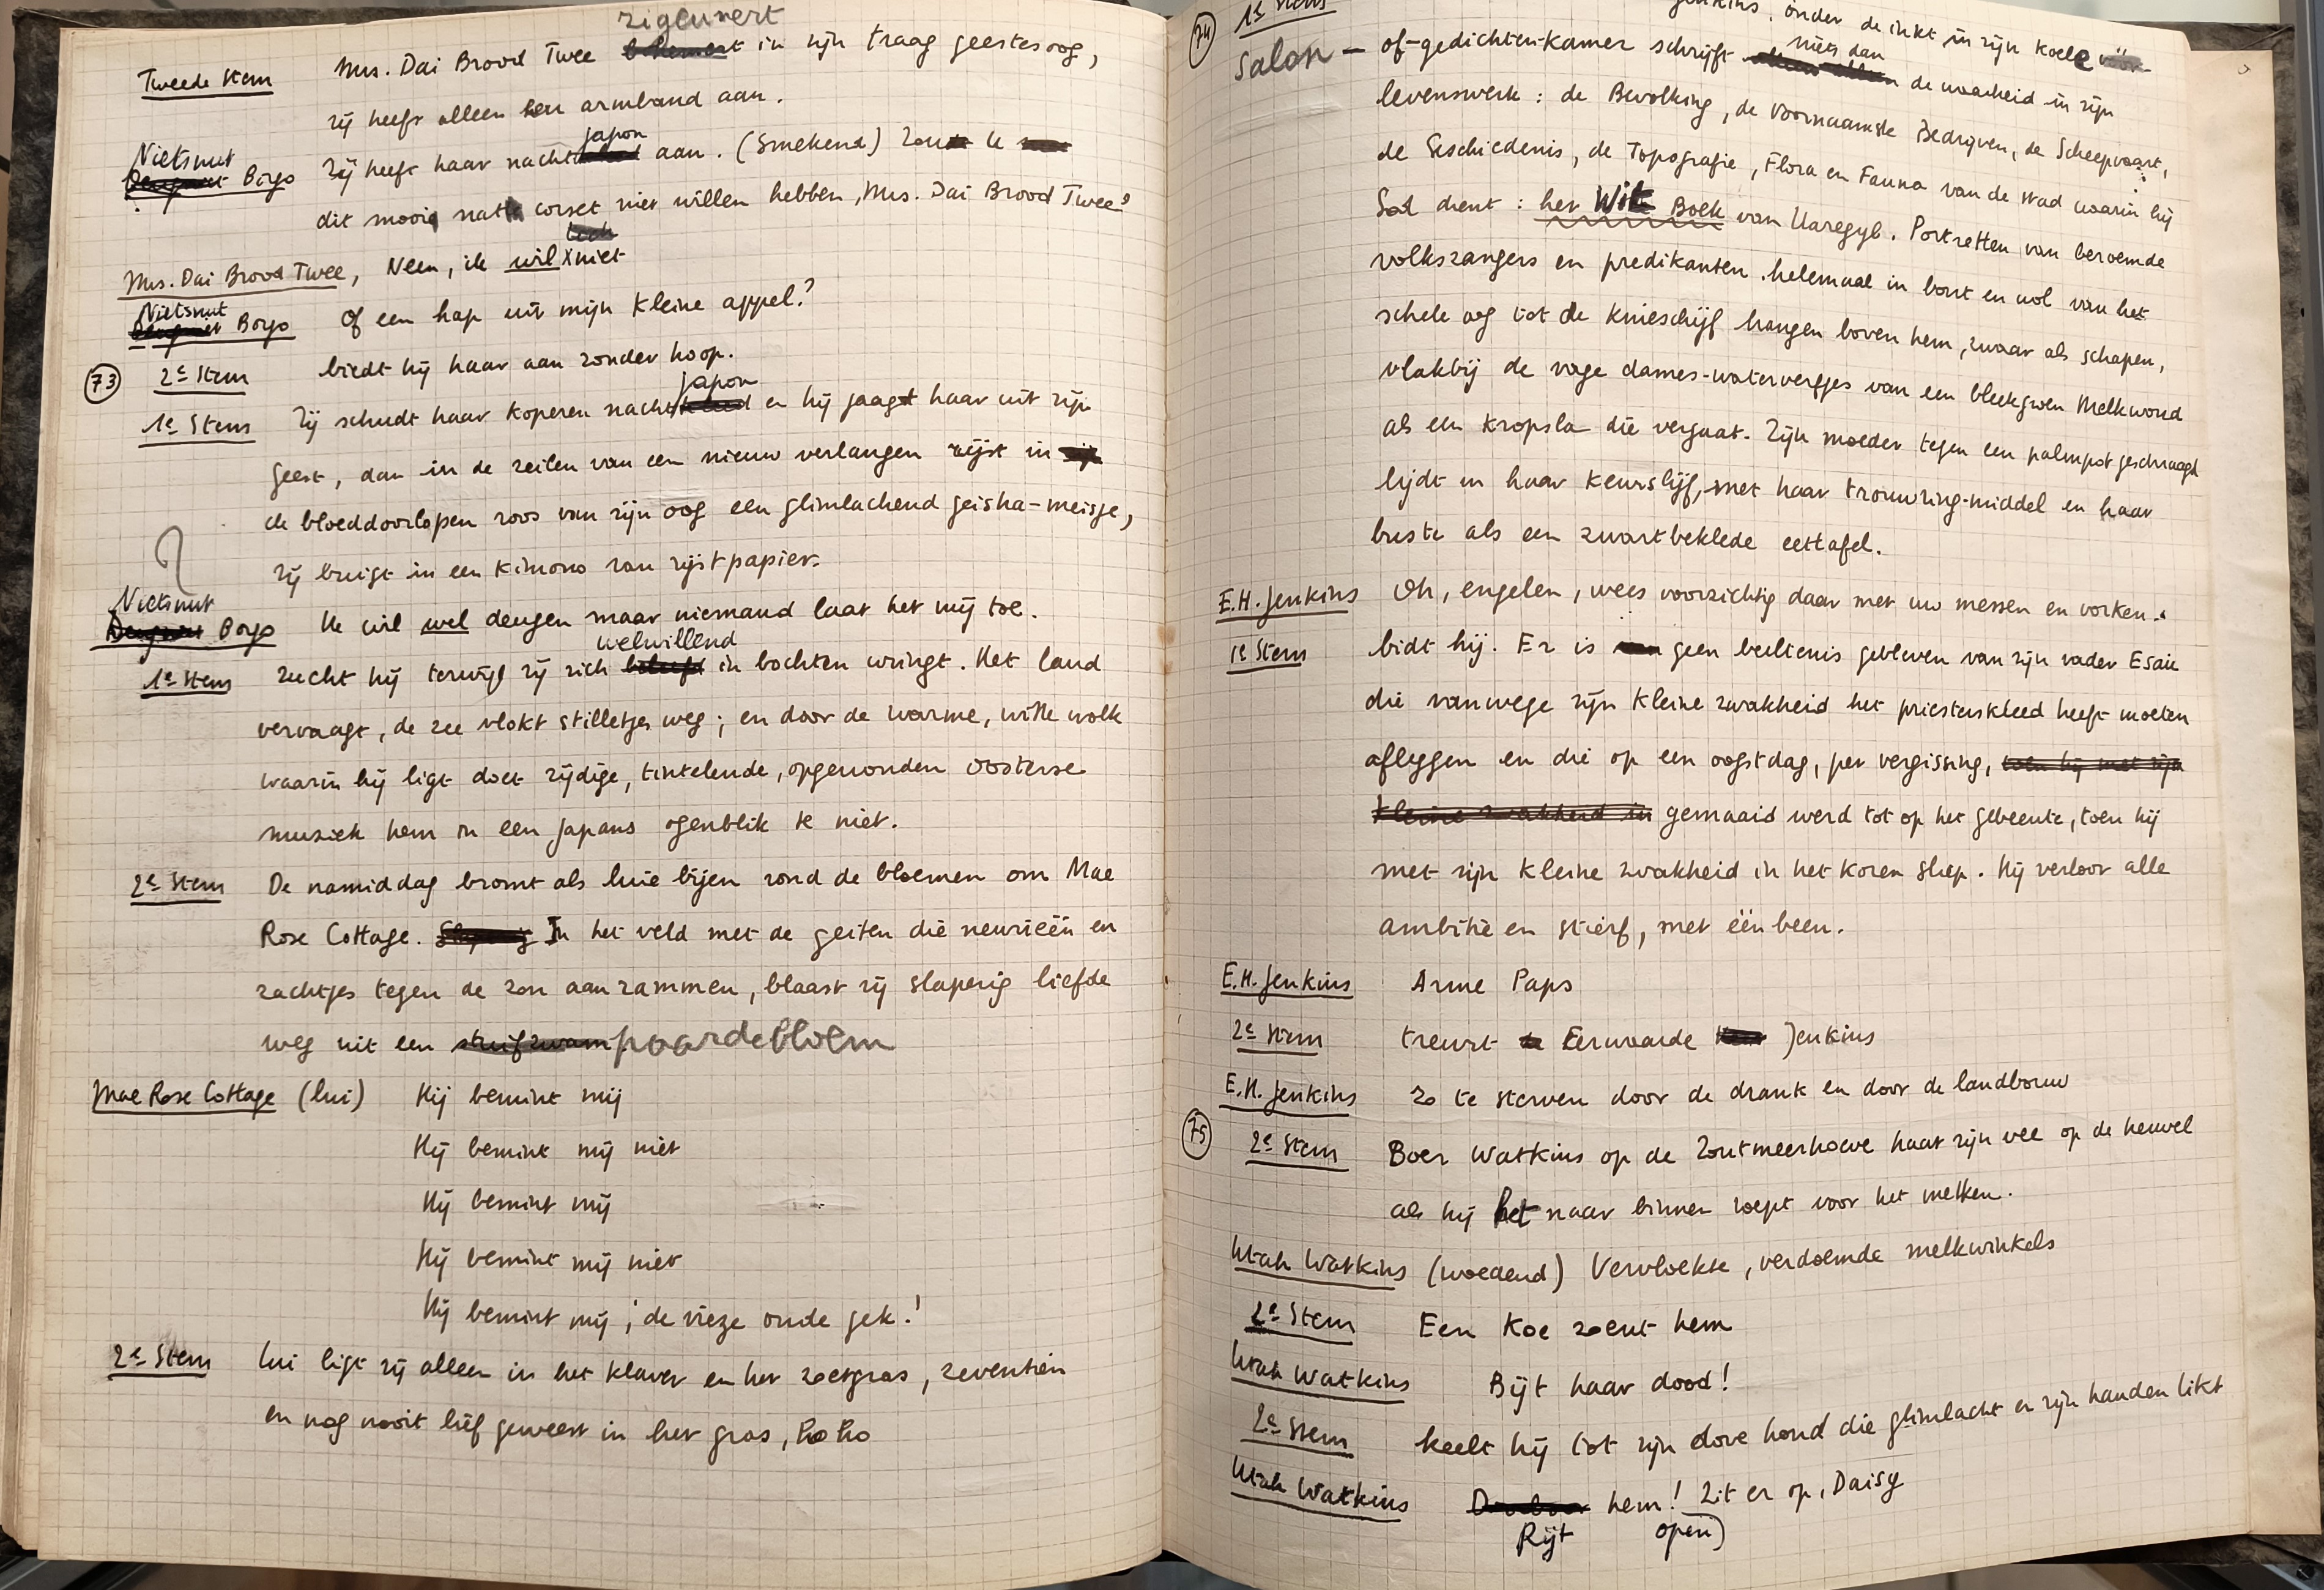 zigeunert
Tweede Stem Mrs. Dai Brood Twee in zijn traag geestesoog,
zij heeft alleen een armband aan.
japon
Nietsnut Boyo Zij heeft haar nacht aan. (Smekend) Zou U
dit mooie natte corset niet willen hebben, Mrs. Dai Brood Twee?
Mrs. Dai Brood Twee, Neen, ik wil niet
Nietsnut Boyo Of een hap uit mijn kleine appel?
73 2e Stem biedt hij haar aan zonder hoop.
japon
1e Stem Zij schudt haar koperen nacht en hij jaagt haar uit zijn
geest, dan in de zeilen van een nieuw verlangen rijst in
de bloeddoorlopen roos van zijn oog een glimlachend geisha-meisje,
zij buigt in een kimono van rijstpapier.
Nietsnut Boyo Ik wil wel deugen maar niemand laat het mij toe.
welwillend
1e Stem zucht hij terwijl zij zich in bochten wringt. Het land
vervaagt, de zee vlokt stilletjes weg; en door de warme, witte wolk
waarin hij ligt doet zijdige, tintelende, opgewonden Oosterse
muziek hem in een Japans ogenblik te niet.
2e Stem De namiddag bromt als luie bijen rond de bloemen om Mae
Rose Cottage. In het veld met de geiten die neuriëën en
zachtjes tegen de zon aanrammen, blaast zij slaperig liefde
weg uit een stuifzwam paardebloem
Mae Rose Cottage (lui) Hij bemint mij
Hij bemint mij niet
Hij bemint mij
Hij bemint mij niet
Hij bemint mij; de vieze oude gek!
2e Stem Lui ligt zij alleen in het klaver en het zoetgras, zeventien
en nog nooit lief geweest in het gras, Ho Ho
74 1e Stem Jenkins, onder de inkt in zijn koele
niets dan
Salon - of-gedichten-kamer schrijft de waarheid in zijn
levenswerk: de Bevolking, de Voornaamste Bedrijven, de Scheepvaart,
de Geschiedenis, de Topografie, Flora en Fauna van de stad waarin hij
God dient: het Wit Boek van Llaregyb. Portretten van beroemde
volkszangers en predikanten helemaal in bont en wol van het
schele oog tot de knieschijf hangen boven hem, zwaar als schapen,
vlakbij de vage dames-waterverfjes van een bleekgroen Melkwoud
als een kropsla die vergaat. Zijn moeder tegen een palmpot geschraagd
lijdt in haar keurslijf, met haar trouwring-middel en haar
buste als een zwartbeklede eettafel.
E.H. Jenkins Oh, engelen, wees voorzichtig daar met uw messen en vorken.
1e Stem bidt hij. Er is geen beeltenis gebleven van zijn vader Esaü
die vanwege zijn kleine zwakheid het priesterskleed heeft moeten
afleggen en die op een oogstdag, per vergissing, toen hij met zijn
kleine zwakheid in gemaaid werd tot op het gebeente, toen hij
met zijn kleine zwakheid in het koren sliep. Hij verloor alle
ambitie en stierf, met één been.
E.H. Jenkins Arme Paps
2e Stem treurt Eerwaarde Jenkins
E.H. Jenkins zo te sterven door de drank en door de landbouw
75 2e Stem Boer Watkins op de Zoutmeerhoeve haat zijn vee op de heuvel
als hij het naar binnen roept voor het melken.
Utah Watkins (woedend) Vervloekte, verdoemde melkwinkels
2e Stem Een koe zoent hem
Utah Watkins Bijt haar dood!
2e Stem keelt hij tot zijn dove hond die glimlacht en zijn handen likt
Utah Watkins hem! Zit er op, Daisy
Rijt open)